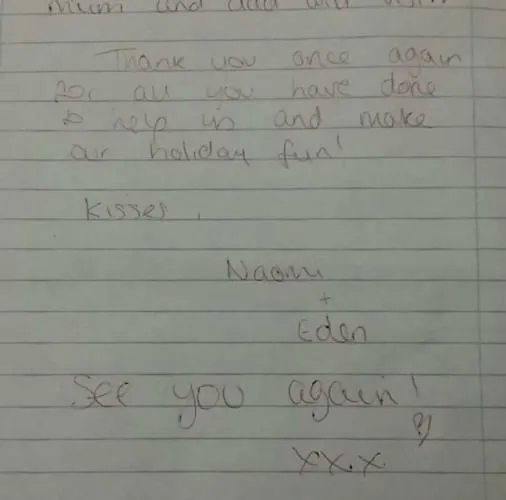 mum and dad will
Thank you once again
for all you have done
to help us and make
our holiday fun!
Kisses,
Naomi
+
Eden
See you again!
?)
xx.x